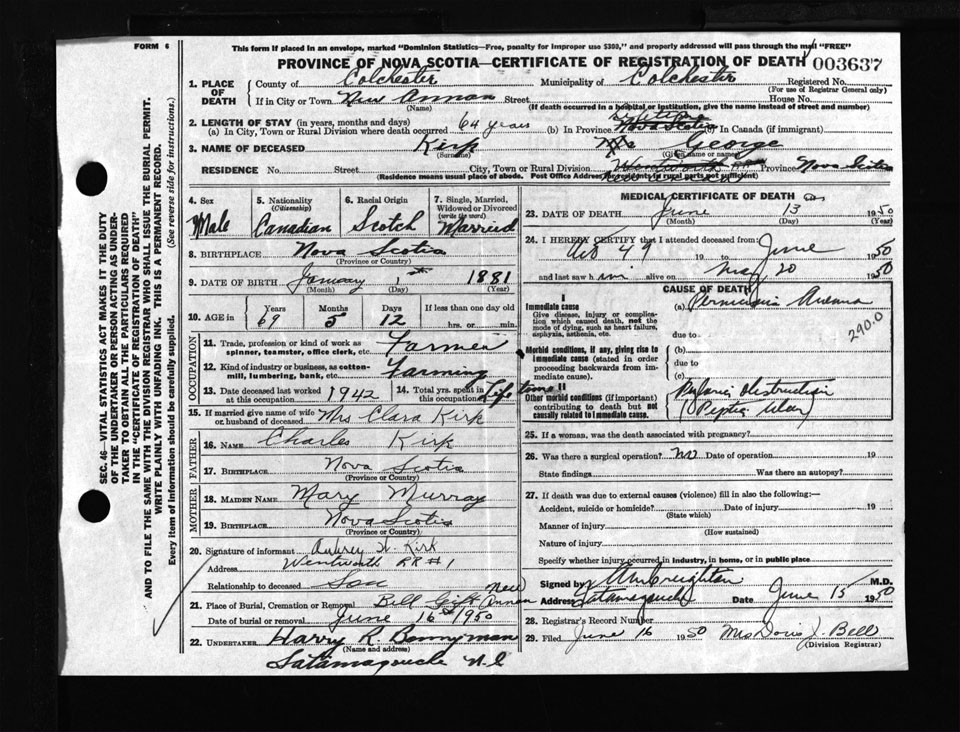 FORM 6
This form if placed in an envelope, marked "Dominion Statistics—Free, penalty for improper use $300," and properly addressed will pass through the mail "FREE"
PROVINCE OF NOVA SCOTIA—CERTIFICATE OF REGISTRATION OF DEATH 003637
1. PLACE OF DEATH
County of Colchester Municipality of Colchester Registered No.
(For use of Registrar General only)
If in City or Town New Annan Street House No.
(Name) (If death occurred in a hospital or institution, give the name instead of street and number)
2. LENGTH OF STAY (in years, months and days)
(a) In City, Town or Rural Division where death occurred 64 years (b) In Province Nova Scotia (c) In Canada (if immigrant)
3. NAME OF DECEASED Kirk George
(Surname) (Given name or names)
RESIDENCE No. Street City, Town or Rural Division Wentworth Province Nova Scotia
(Residence means usual place of abode. Post Office Address of residents in rural parts not sufficient)
4. Sex Male
5. Nationality (Citizenship) Canadian
6. Racial Origin Scotch
7. Single, Married, Widowed or Divorced (write the word) Married
8. BIRTHPLACE Nova Scotia
(Province or Country)
9. DATE OF BIRTH January 1st 1881
(Month) (Day) (Year)
10. AGE in Years 69 Months 5 Days 12 If less than one day old hrs. or min.
OCCUPATION
11. Trade, profession or kind of work as spinner, teamster, office clerk, etc. Farmer
12. Kind of industry or business, as cotton-mill, lumbering, bank, etc. Farming
13. Date deceased last worked at this occupation 1942
14. Total yrs. spent in this occupation Life time
15. If married give name of wife or husband of deceased Mrs Clara Kirk
FATHER
16. NAME Charles Kirk
17. BIRTHPLACE Nova Scotia
(Province or Country)
MOTHER
18. MAIDEN NAME Mary Murray
19. BIRTHPLACE Nova Scotia
(Province or Country)
20. Signature of informant Aubrey W. Kirk
Address Wentworth RR #1
Relationship to deceased Son
21. Place of Burial, Cremation or Removal Bell Gift New Annan
Date of burial or removal June 16th 1950
22. UNDERTAKER Harry R. Bonnyman
(Name and address)
Tatamagouche N.S
MEDICAL CERTIFICATE OF DEATH
23. DATE OF DEATH June 13 1950
(Month) (Day) (Year)
24. I HEREBY CERTIFY that I attended deceased from:
49 19 to June 1950
and last saw him alive on May 20 1950
CAUSE OF DEATH
I
Immediate cause
Give disease, injury or complication which caused death, not the mode of dying, such as heart failure, asphyxia, asthenia, etc.
(a) Pernicious Anemia
290.0
due to
Morbid conditions, if any, giving rise to immediate cause (stated in order proceeding backwards from immediate cause).
(b)
due to
(c)
II
Other morbid conditions (if important) contributing to death but not causally related to immediate cause.
Pyloric Obstruction
(Peptic Ulcer)
25. If a woman, was the death associated with pregnancy?
26. Was there a surgical operation? no Date of operation 19
State findings Was there an autopsy?
27. If death was due to external causes (violence) fill in also the following:—
Accident, suicide or homicide? Date of injury 19
(State which)
Manner of injury
(How sustained)
Nature of injury
Specify whether injury occurred in industry, in home, or in public place
Signed by Creighton M.D.
Address Tatamagouche Date June 15 1950
28. Registrar's Record Number
29. Filed June 16 1950 Mrs Doris J. Bell
(Division Registrar)
SEC. 46—VITAL STATISTICS ACT MAKES IT THE DUTY
OF THE UNDERTAKER OR PERSON ACTING AS UNDER-
TAKER TO OBTAIN ALL THE PARTICULARS REQUIRED
IN THE "CERTIFICATE OF REGISTRATION OF DEATH"
AND TO FILE THE SAME WITH THE DIVISION REGISTRAR WHO SHALL ISSUE THE BURIAL PERMIT.
WRITE PLAINLY WITH UNFADING INK. THIS IS A PERMANENT RECORD.
Every item of information should be carefully supplied. (See reverse side for instructions.)